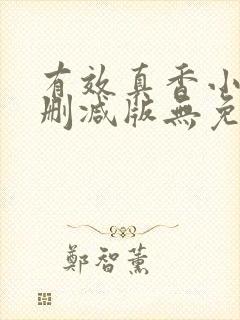 有效真香小
删减版無免
鄭智薰